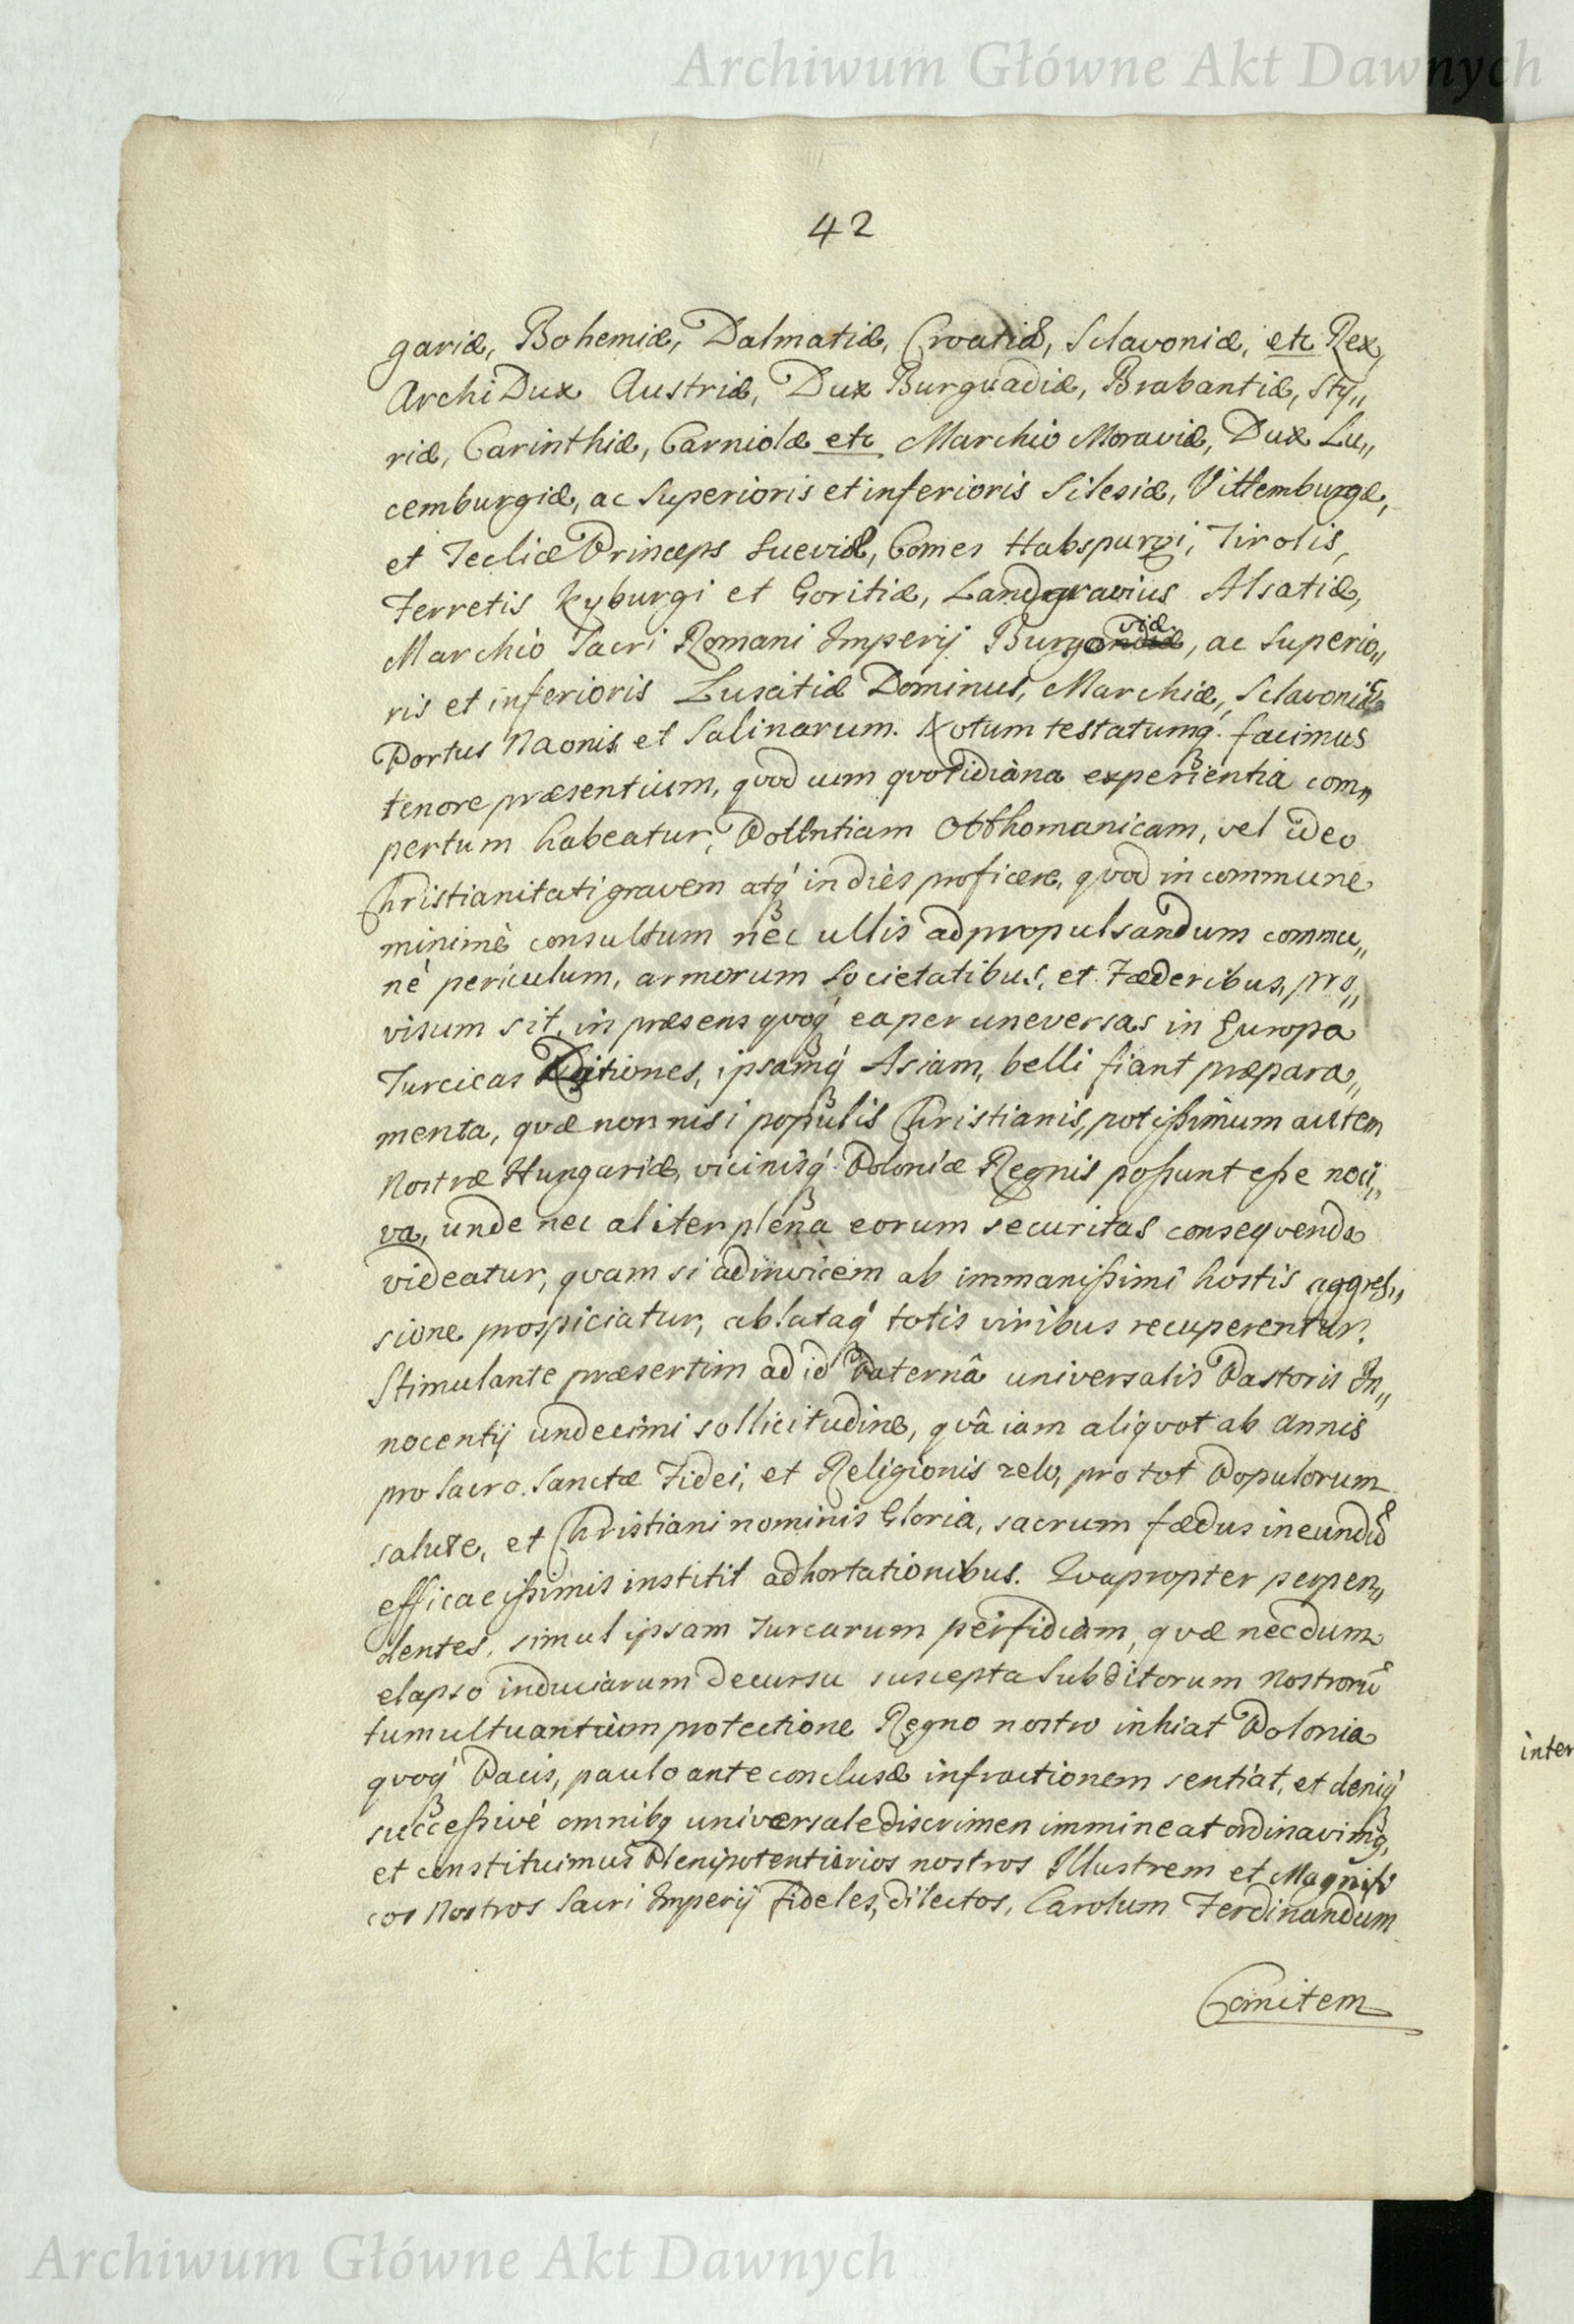 Archiwum Główne Akt Dawnych
42
gariæ, Bohemiæ, Dalmatiæ, Croatiæ, Sclavoniæ, etc Rex,
ArchiDux Austriæ, Dux Burguadiæ, Brabantiæ, Sty„
riæ, Carinthiæ, Carniolæ etc Marchio Moraviæ, Dux Lu„
cemburgiæ, ac Superioris et inferioris Silesiæ, Vittemburgæ,
et Tecliæ Princeps Sueviæ, Comes Habspurgi, Tirolis,
Ferretis Kyburgi et Goritiæ, Landgravius Alsatiæ,
viæ
Marchio Sacri Romani Imperij Burgondiæ, ac Superio„
ris et inferioris Lusatiæ Dominus, Marchiæ, Sclavoniæ
Portus Naonis et Salinarum. Notum testatumq. facimus
tenore præsentium, quod cum quotidiana experientia com„
pertum habeatur, Potentiam Otthomanicam, vel ideo
Christianitati gravem atq́ in dies proficere, quod in commune
minimè consultum nec ullis ad propulsandum commu„
nè periculum, armorum Societatibus, et Fæderibus, pro„
visum sit, in præsens quoq́ ea per uneversas in Europa
Turcicas Ditiones, ipsamq́ Asiam, belli fiant præpara„
menta, quæ non nisi populis Christianis, potißimum autem
Nostræ Hungariæ, vicinisq́ Poloniæ Regnis poßunt eße noci„
va, unde nec aliter plena eorum securitas consequenda
videatur, quam si adinvicem ab immanißimi hostis aggres„
sione prospiciatur, ablataq́ totis viribus recuperentur.
Stimulante præsertim ad id Paternâ universalis Pastoris In„
nocentij undecimi sollicitudine, quâ iam aliquot ab annis
pro Sacro. Sanctæ Fidei, et Religionis zelo, pro tot Populorum
salute, et Christiani nominis Gloria, sacrum fædus ineundi
efficacißimis institit adhortationibus. Quapropter perpen„
dentes, simul ipsam Turcarum perfidiam, quæ necdum
elapso induciarum decursu suscepta Subditorum Nostrorū
tumultuantium protectione Regno nostro inhiat Polonia
quoq́ Pacis, paulo ante conclusæ infractionem sentiat, et deniq́
succeßivè omnibq universale discrimen immineat ordinavimq,
et constituimus Plenipotentiarios nostros Illustrem et Magnifi
cos Nostros Sacri Imperij fideles, dilectos, Carolum Ferdinandum
Comitem
inter
Archiwum Główne Akt Dawnych